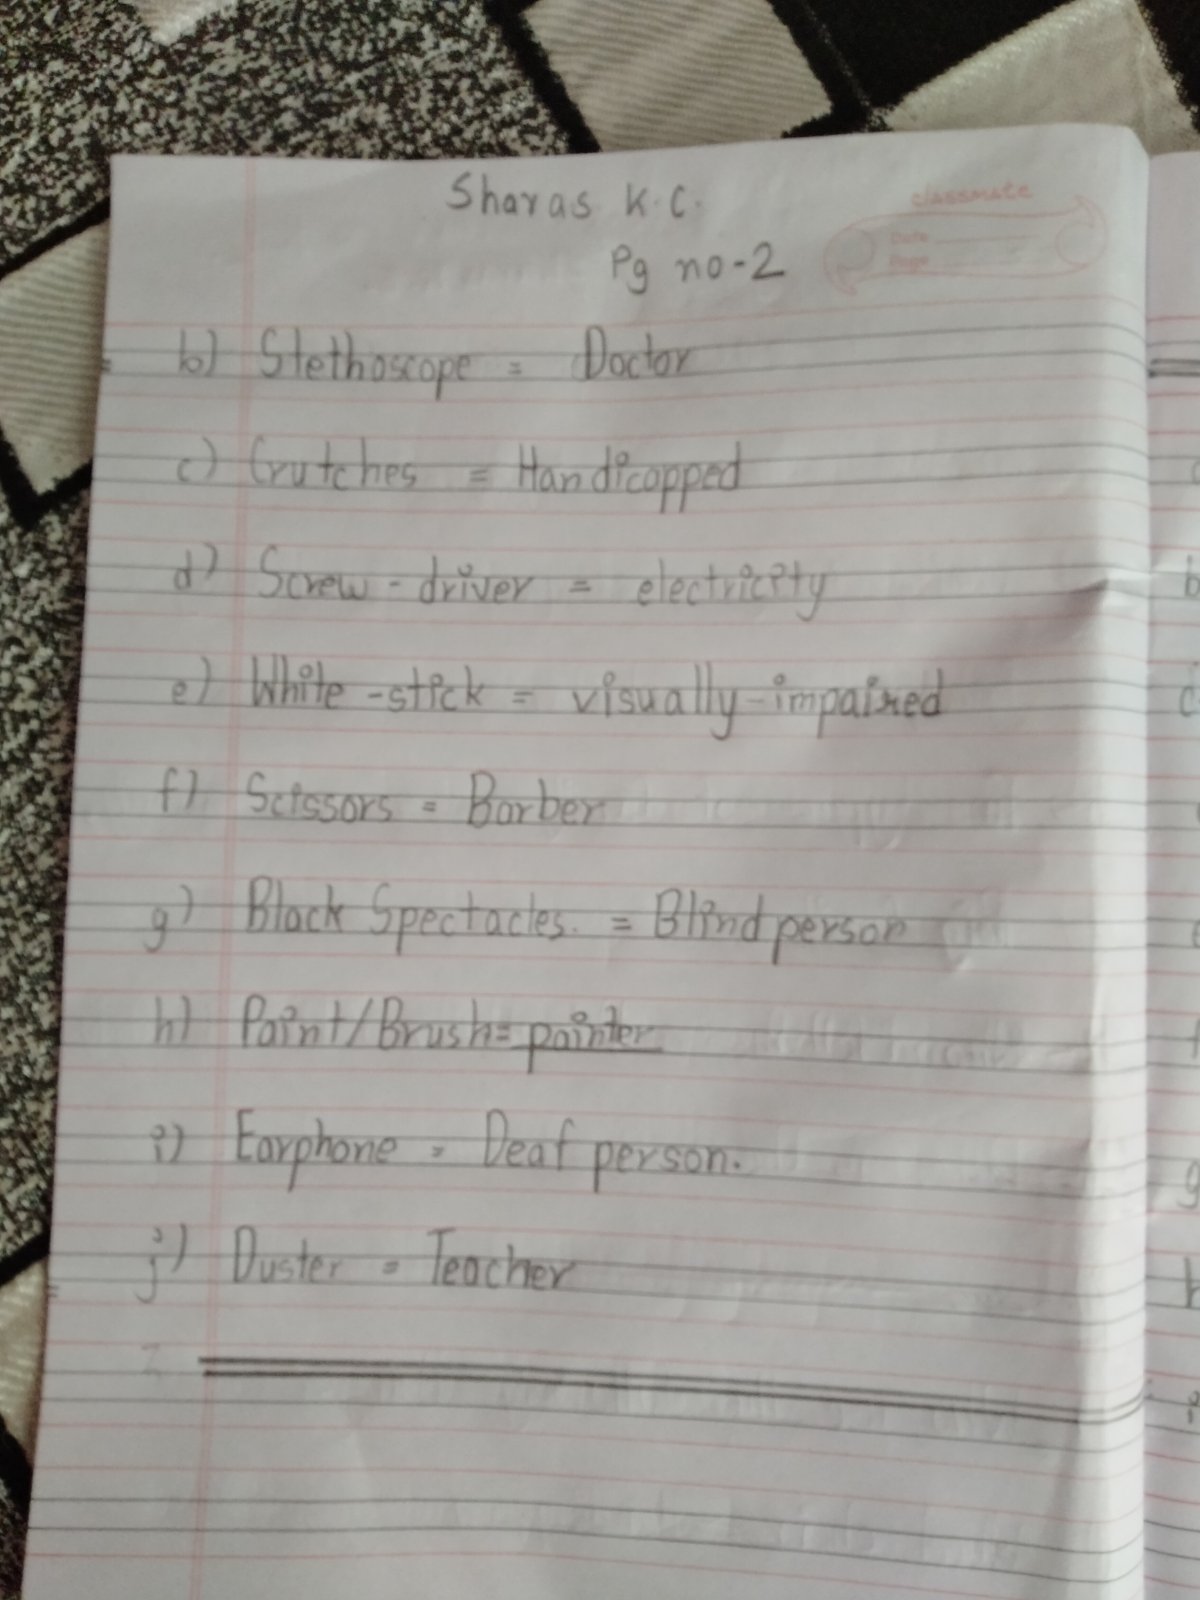 Sharas K.C.
classmate
Date
Page
Pg no-2
b) Stethoscope = Doctor
c) Crutches = Handicopped
d) Screw-driver = electricity
e) White-stick = visually-impaired
f) Scissors = Barber
g) Black Spectacles. = Blind person
h) Paint/Brush = painter
i) Earphone = Deaf person.
j) Duster = Teacher